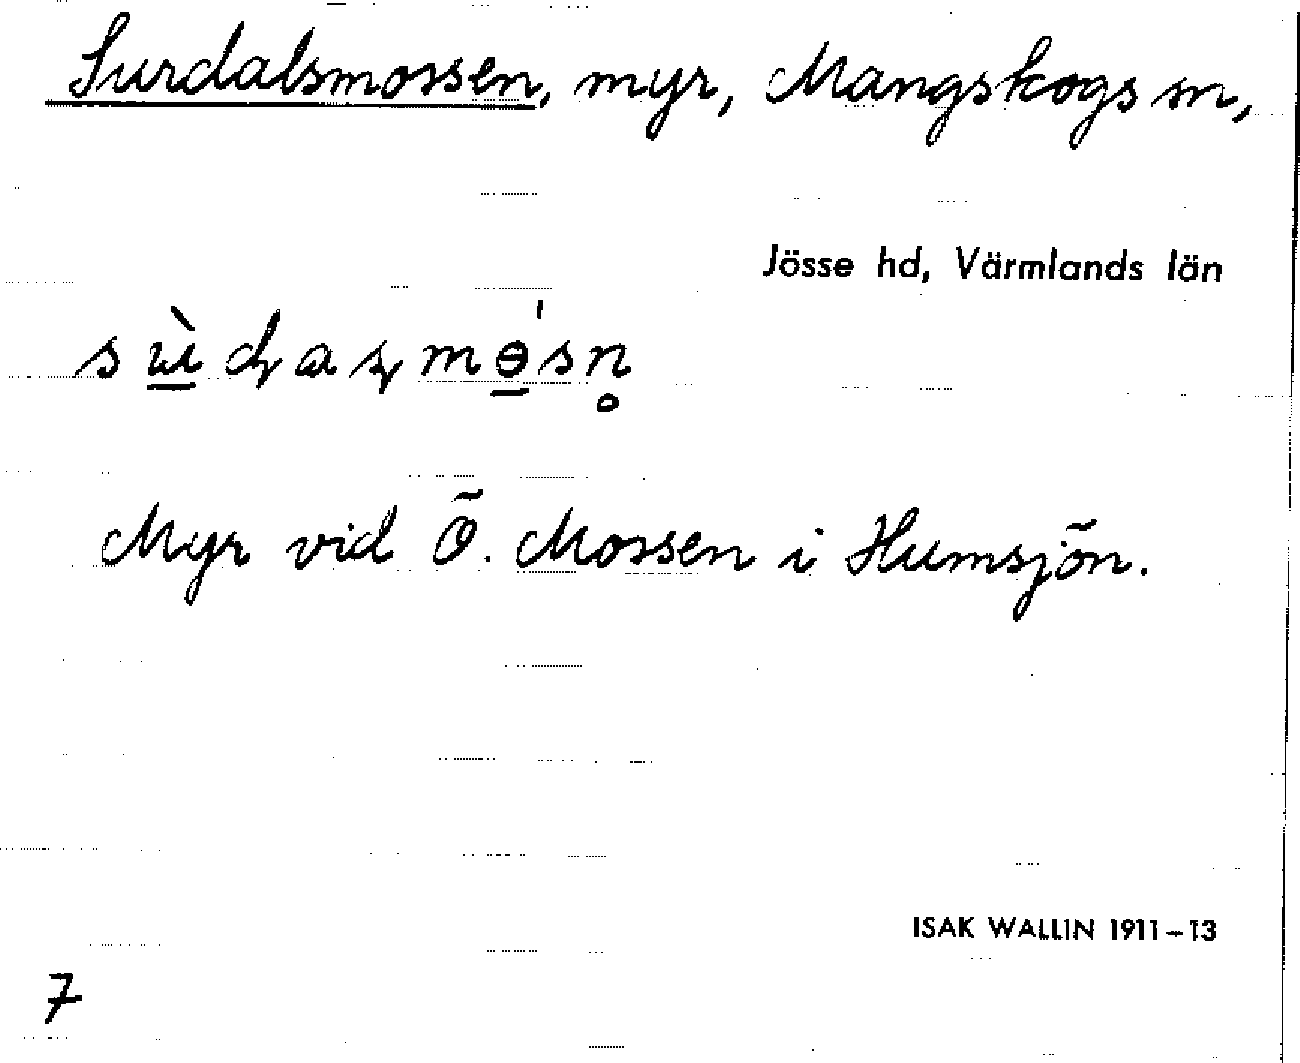 Surdalsmossen, myr, Mangskogs sn,
Jösse hd, Värmlands län
Myr vid Ö. Mossen i Humsjön.
ISAK WALLIN 1911-13
7